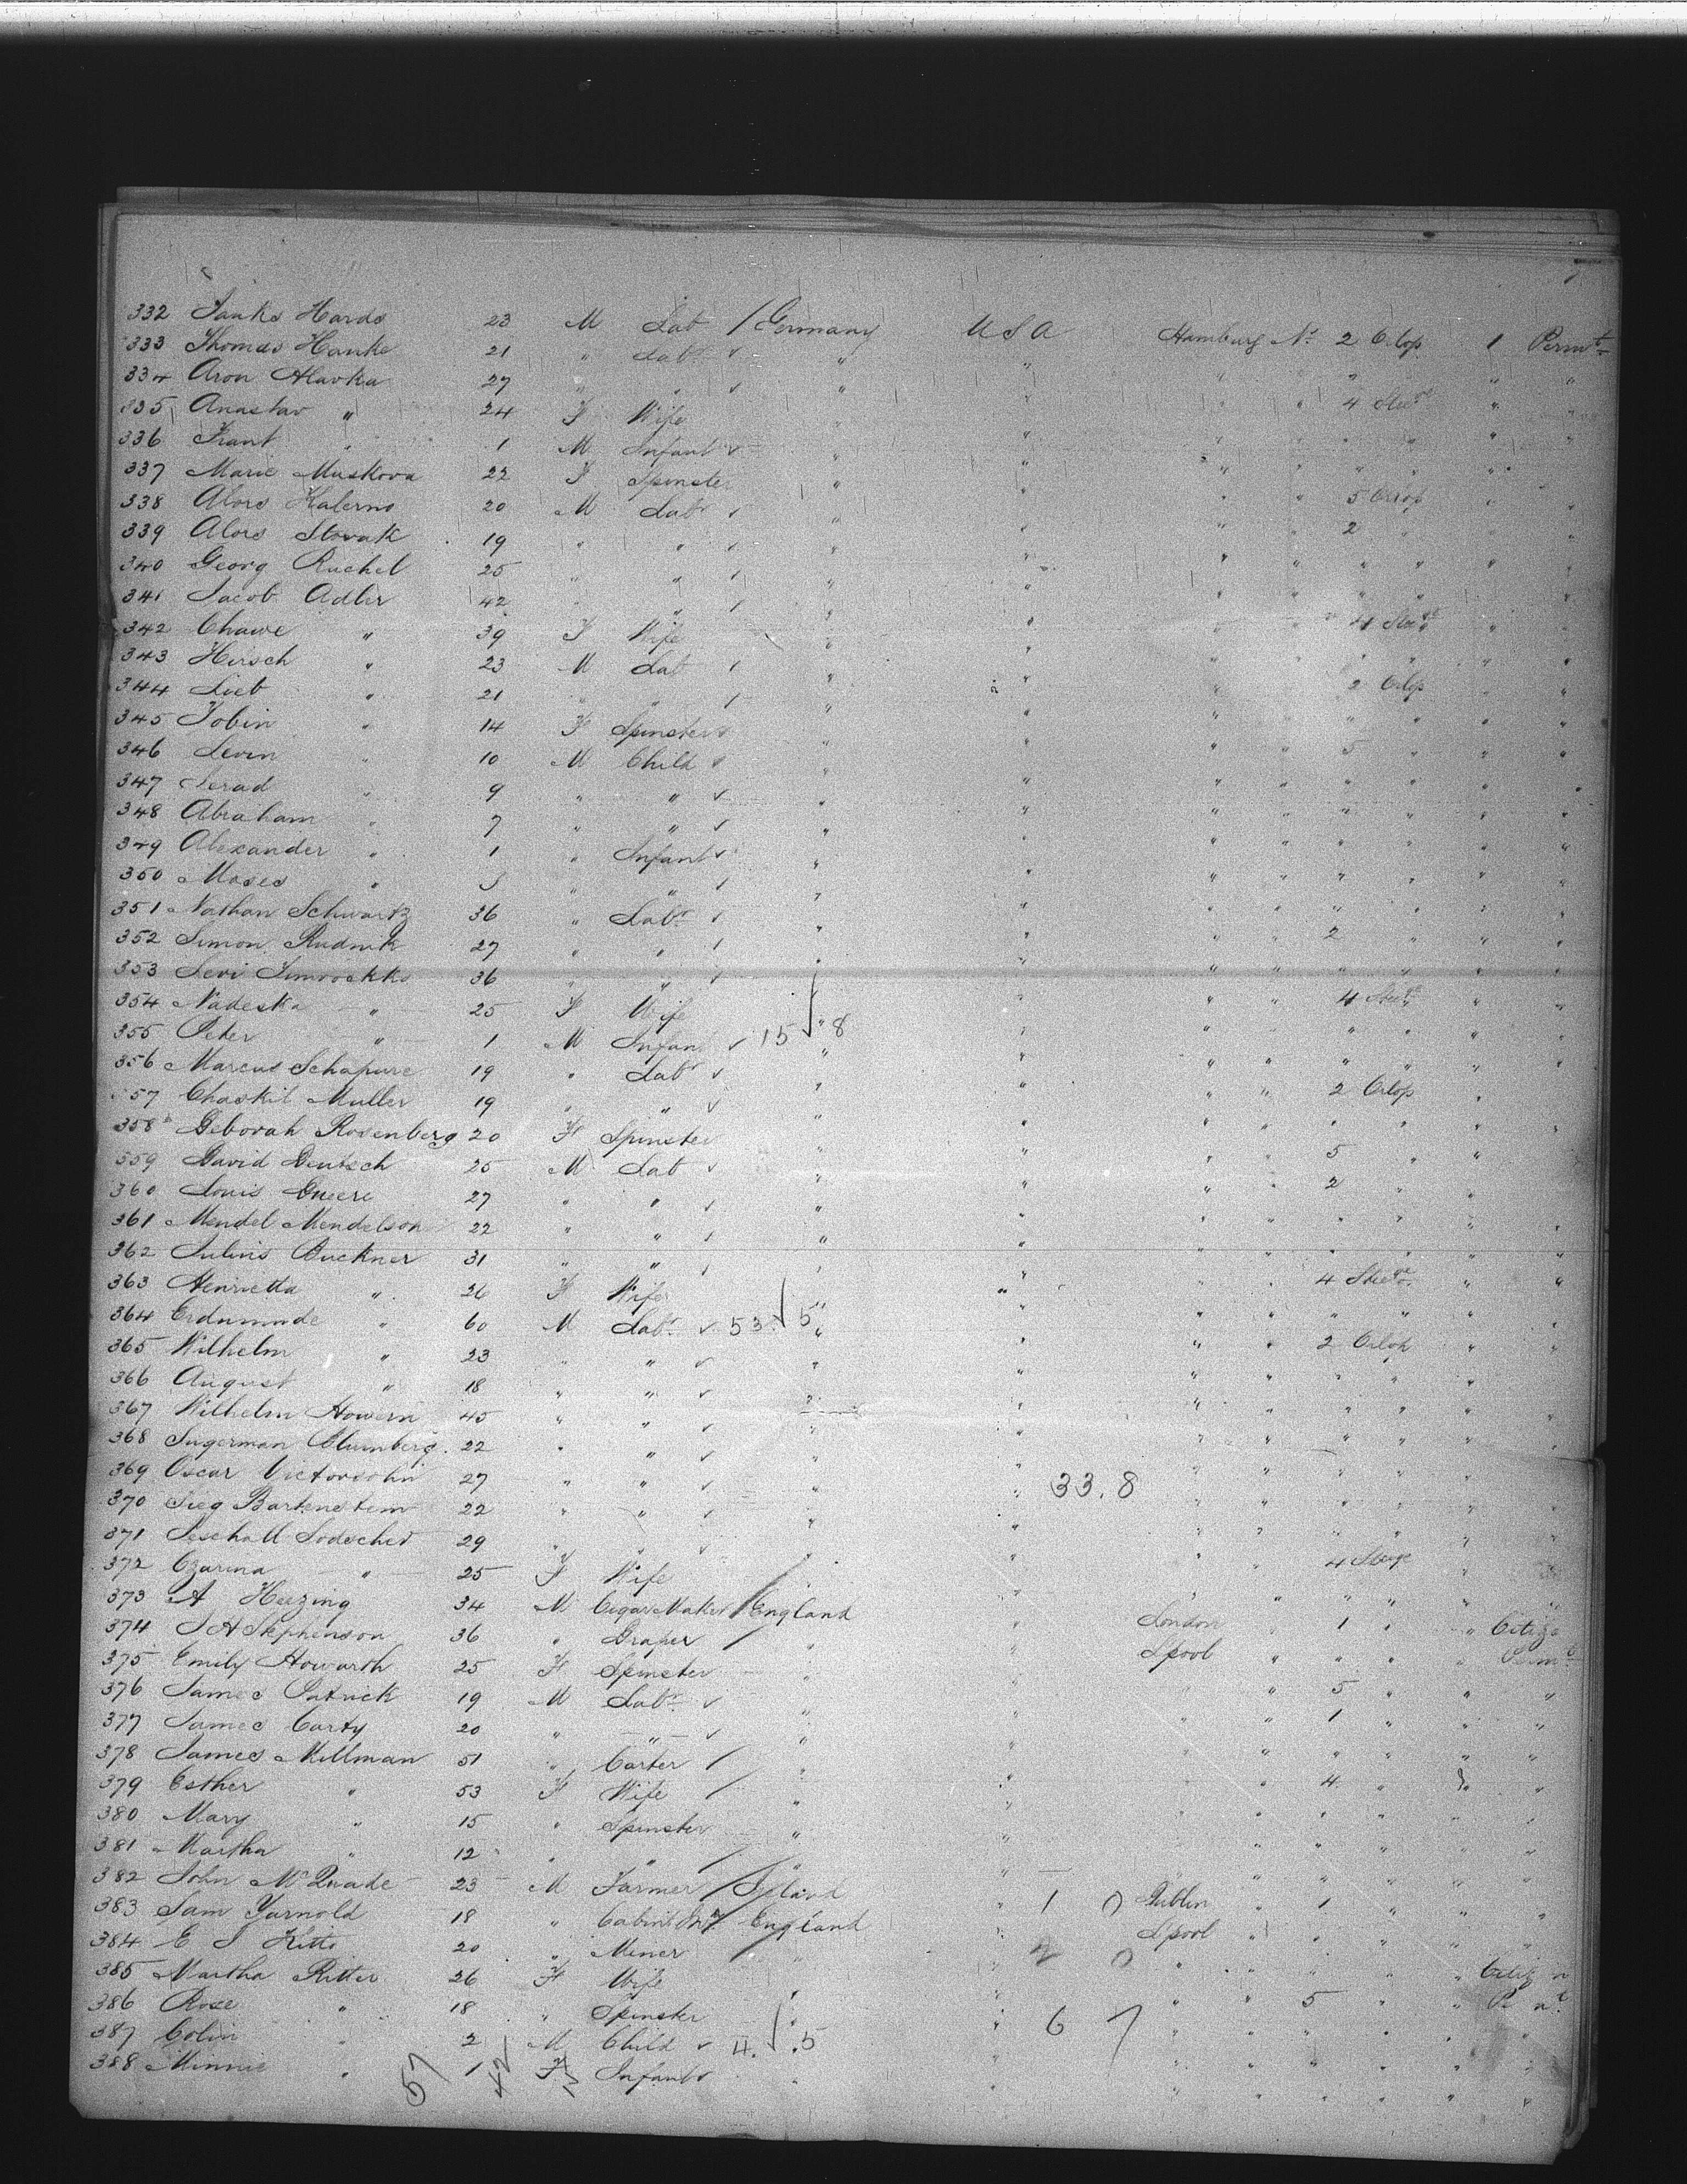 332 Hards 23 M Lab / Germany U S A Hamburg No 2 Orlop 1 Permt
333 Thomas Hanke 21 " Labr " " " " " " "
334 Aron Hlavka 27 " " " " " " 4 Steege " "
335 Anastav " 24 F Wife " " " " " " "
336 Frant " 1 M Infant " " " " " " "
337 Marie Muskova 22 F Spinster " " " " 5 Orlop " "
338 Alois Kalerno 20 M Labr " " " " 2 " " "
339 Alois Slovak 19 " " " " " " " " " "
340 Georg Ruchel 25 " " " " " " " " " "
341 Jacob Adler 42 " " " " " " 4 Steege " "
342 Chawe " 39 F Wife " " " " " " " "
343 Hirsch " 23 M Lab " " " " 2 Orlop " "
344 Lieb " 21 " " " " " " " " " "
345 Tobin " 14 F Spinster " " " " 5 " " "
346 Levin " 10 M Child " " " " " " " "
347 " 9 " " " " " " " " " "
348 Abraham " 7 " " " " " " " " " "
349 Alexander " 1 " Infant " " " " " " " "
350 Moses " " " " " " " " " " "
351 Nathan Schwartz 36 " Labr " " " " 2 " " "
352 Simon Rudnik 27 " " " " " " " " " "
353 Levi 36 " " " " " " 4 Steege " "
354 Nadeska " 25 F Wife " " " " " " " "
355 Peter " 1 M Infant 15 8 " " " " " " " "
356 Marcus Schapure 19 " Labr " " " " 2 Orlop " "
357 Chaskil Muller 19 " " " " " " " " " "
358 Deborah Rosenberg 20 F Spinster " " " " 5 " " "
359 David Deutsch 25 M Lab " " " " 2 " " "
360 Louis 27 " " " " " " " " " "
361 Mendel Mendelson 22 " " " " " " " " " "
362 Julius Buckner 31 " " " " " " 4 Steege " "
363 Henrietta " 26 F Wife " " " " " " " "
364 " 60 M Labr 53 5 " " " " 2 Orlop " "
365 Wilhelm " 23 " " " " " " " " " "
366 August " 18 " " " " " " " " " "
367 Wilhelm Howern 45 " " " " " " " " " "
368 Sugerman Blumberg 22 " " " " " " " " " "
369 Oscar Victorsohn 27 " " " " 33.8 " " " " " "
370 Sieg Bartenstein 22 " " " " " " " " " "
371 29 " " " " " " 4 Steege " "
372 Czarina " 25 F Wife " " " " " " " "
373 A Herzing 34 M Cigar Maker / England " London " 1 " " Citizn
374 S A Stephenson 36 " Draper / " " Lpool " " " " Permt
375 Emily Howarth 25 F Spinster " " " " 5 " " "
376 James Patrick 19 M Labr " " " " 1 " " "
377 James Carty 20 " " " " " " " " " "
378 James Millman 51 " Carter / " " " " 4 " " "
379 Esther " 53 F Wife / " " " " " " " "
380 Mary " 15 " Spinster " " " " " " " "
381 Martha " 12 " " " " " " " " " "
382 John McQuade 23 M Farmer / Ireland " 1 0 Dublin " 1 " " "
383 Sam Yarnold 18 " Cabint Mkr England " Lpool " " " " "
384 E J Kitto 20 " Miner " " 2 0 " " " " " Citizn
385 Martha Ritter 26 F Wife " " " " 5 " " Permt
386 Rose " 18 " Spinster " " 6 7 " " " " " "
387 Colin " 2 M Child 4. 5 " " " " " " "
388 Minnie " 1 F Infant " " " " " " " "
57 42